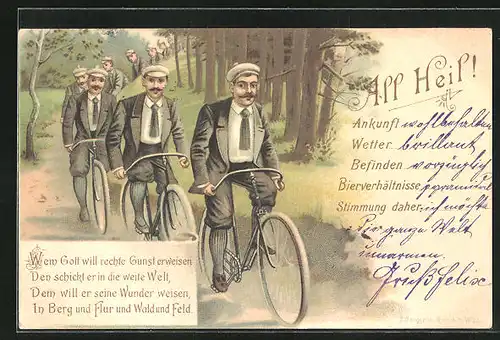 All Heil!
Ankunft wohlbehalten
Wetter brillant
Befinden vorzüglich
Bierverhältnisse
Stimmung daher, ich möchte
die ganze Welt
umarmen.
Gruß Felix
Wem Gott will rechte Gunst erweisen
Den schickt er in die weite Welt,
Dem will er seine Wunder weisen,
In Berg und Flur und Wald und Feld.